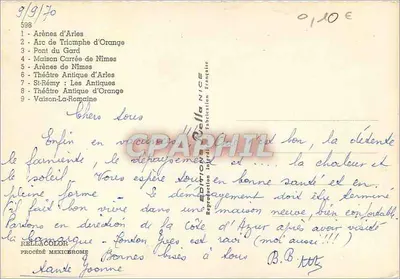 9/9/70
0,10€
598
1 - Arènes d'Arles
2 - Arc de Triomphe d'Orange
3 - Pont du Gard
4 - Maison Carrée de Nîmes
5 - Arènes de Nîmes
6 - Théâtre Antique d'Arles
7 - St-Rémy : Les Antiques
8 - Théâtre Antique d'Orange
9 - Vaison-La-Romaine
EDITIONS Sella NICE
Reproduction Interdite Fabrication Française
CPAPHIL.com
Chers tous
Enfin en bon, la détente
le farniente, le dépaysement et .... la chaleur et
le soleil - Vous espère tous en bonne santé et en
pleine forme - Le déménagement doit être terminé
il fait bon vivre dans une maison neuve bien confortable.
Partons en direction de la côte d'Azur après avoir visité
la Camargue - est ravi (moi aussi !!!)
Bonnes bises à tous B.B
tante Yvonne
KELLACOLOR
PROCÉDÉ MEXICHROME